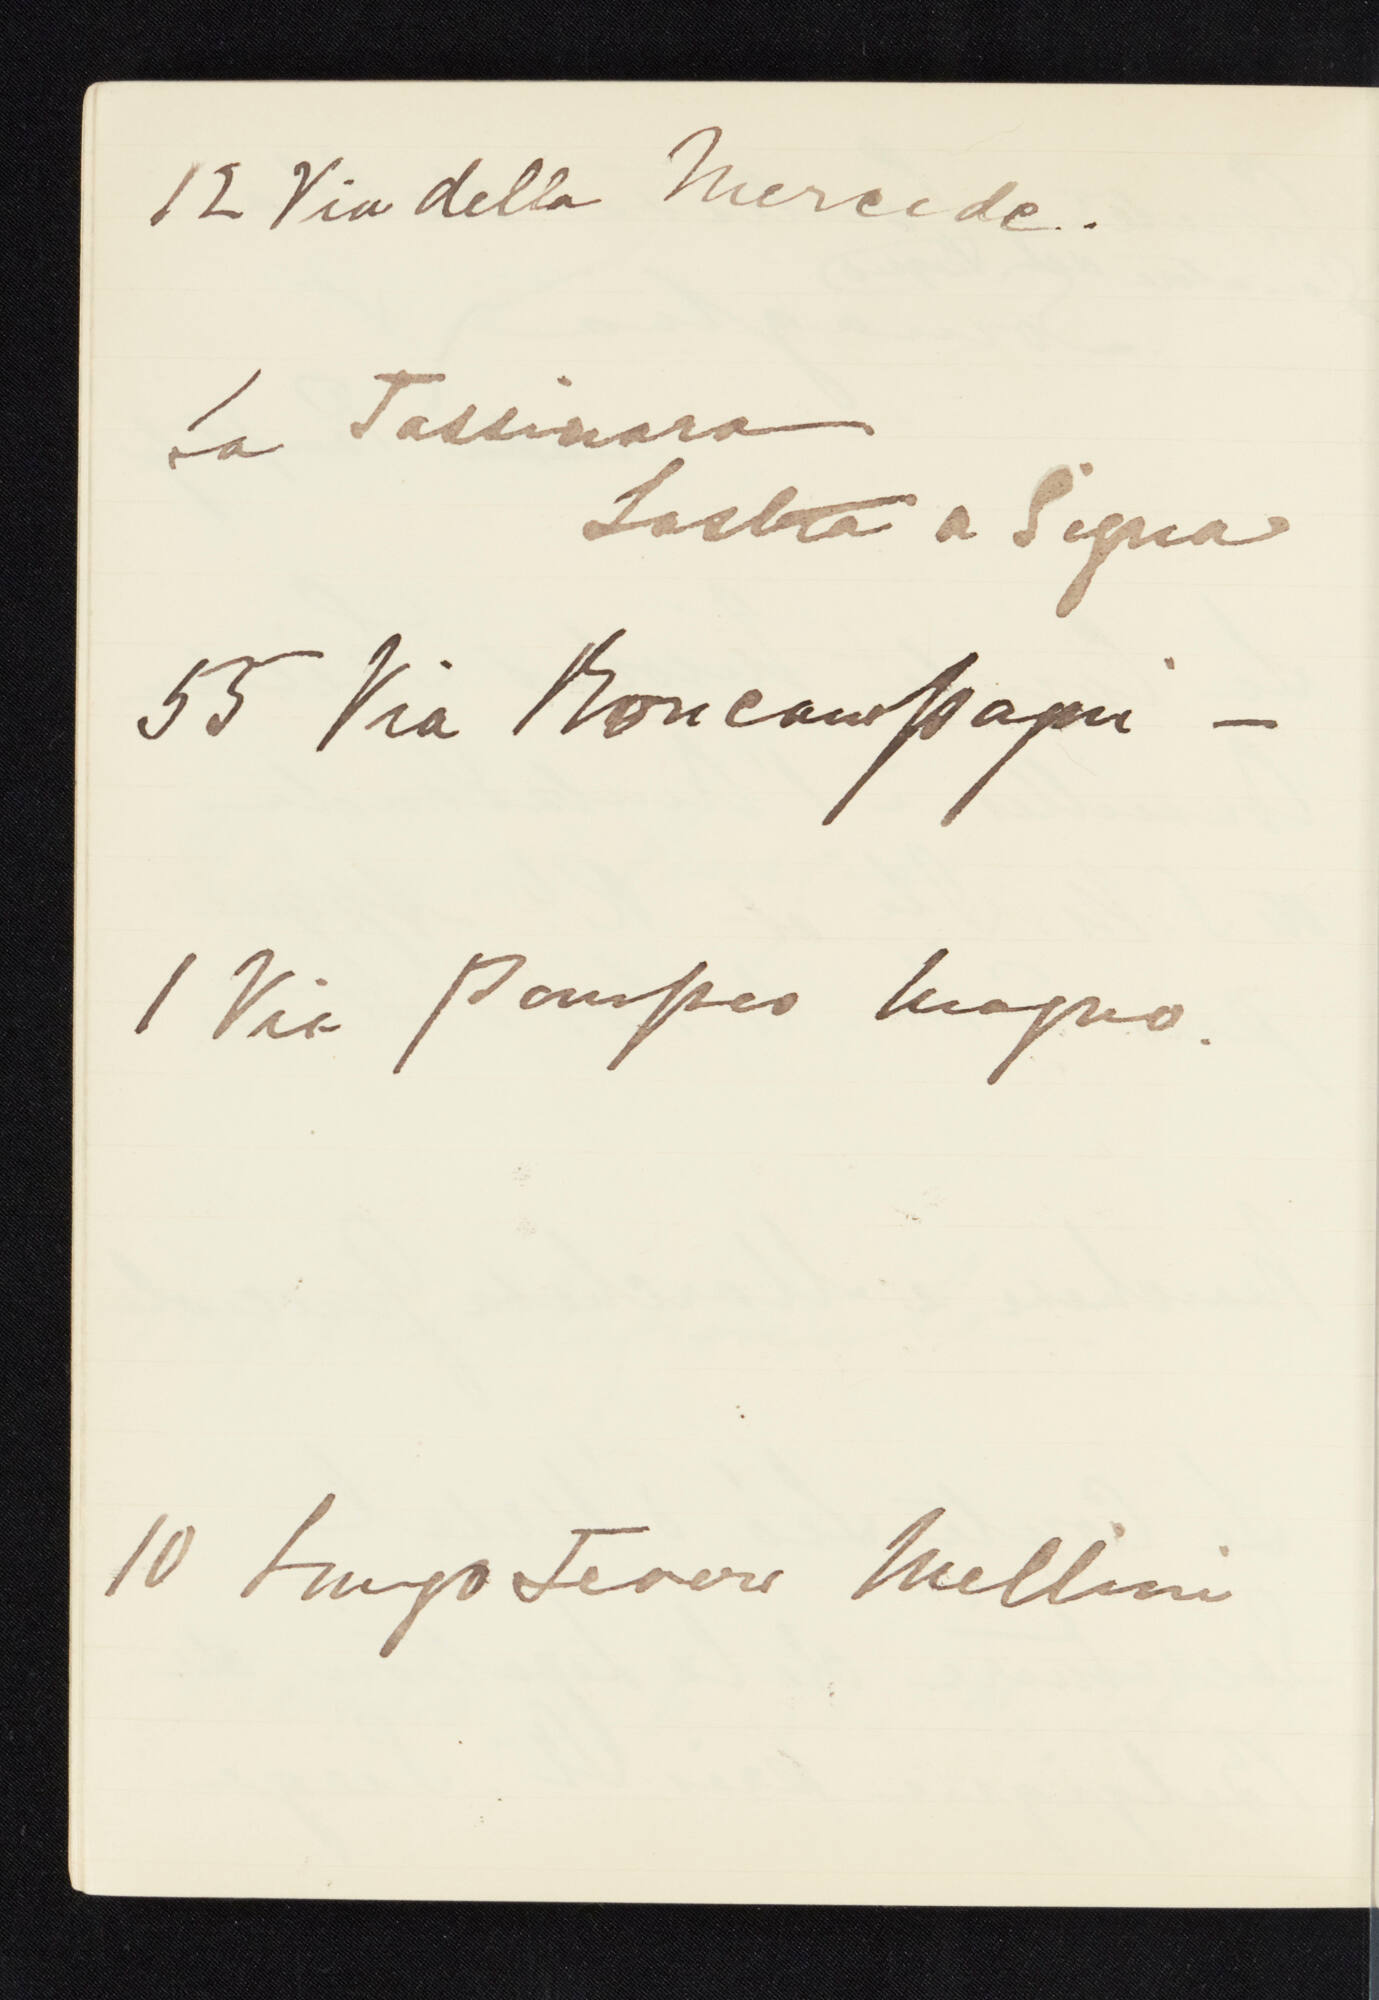 12 Via della Mercede.
La Tassinara
Lastra a Signa
55 Via Boncompagni –
1 Via Pompeo Magno.
10 Lungo Tevere Mellini